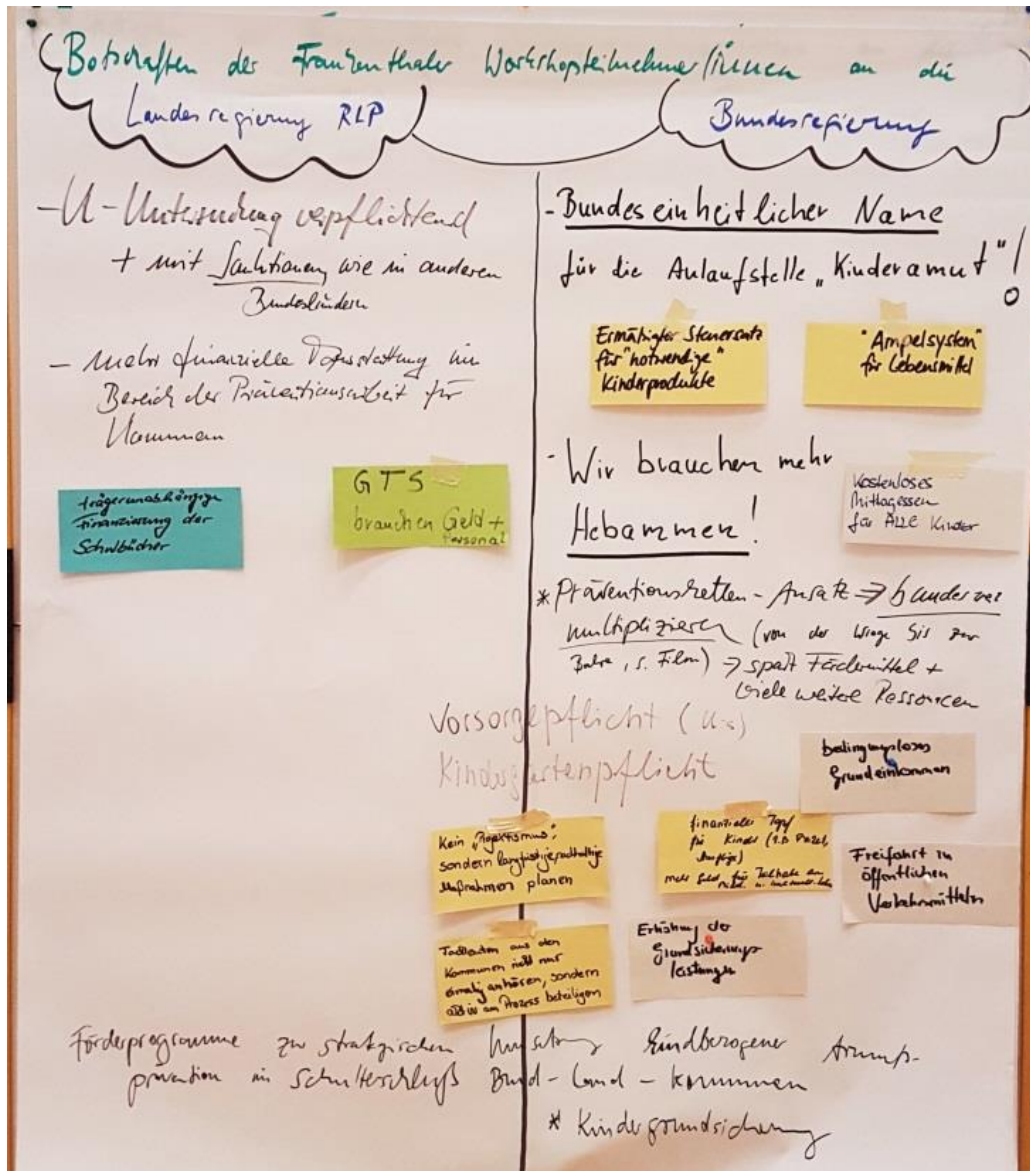 Botschaften der Frankenthaler Workshopteilnehmer/innen an die
Landesregierung RLP
Bundesregierung
- U - Untersuchung verpflichtend
+ mit Sanktionen, wie in anderen
Bundesländern
- mehr finanzielle Ausstattung im
Bereich der Präventionsarbeit für
Kommunen
trägerunabhängige
Finanzierung der
Schulbücher
GTS
brauchen Geld +
Personal
- Bundeseinheitlicher Name
für die Anlaufstelle "Kinderamut"!
Ermäßigter Steuersatz
für "notwendige"
Kinderprodukte
"Ampelsystem"
für Lebensmittel
- Wir brauchen mehr
Hebammen!
Kostenloses
Mittagessen
für ALLE Kinder
* Präventionsketten - Ansatz => bundesweit
multiplizieren (von der Wiege bis zur
Bahre, s. Film) => spart Fördermittel +
viele weitere Ressourcen
Vorsorgepflicht (U's)
Kindergartenpflicht
bedingungsloses
Grundeinkommen
Kein "Projektismus",
sondern langfristige, nachhaltige
Maßnahmen planen
finanzieller Topf
für Kinder (z.B.
Ausflüge)
mehr Geld für Teilhabe am
Freifahrt in
öffentlichen
Verkehrsmitteln
Fachleuten aus den
Kommunen nicht nur
einmalig anhören, sondern
aktiv am Prozess beteiligen
Erhöhung der
Grundsicherungs
leistungen
Förderprogramme zur strategischen Umsetzung kindbezogener Armuts-
prävention im Schulterschluß Bund - Land - Kommunen
* Kindergrundsicherung